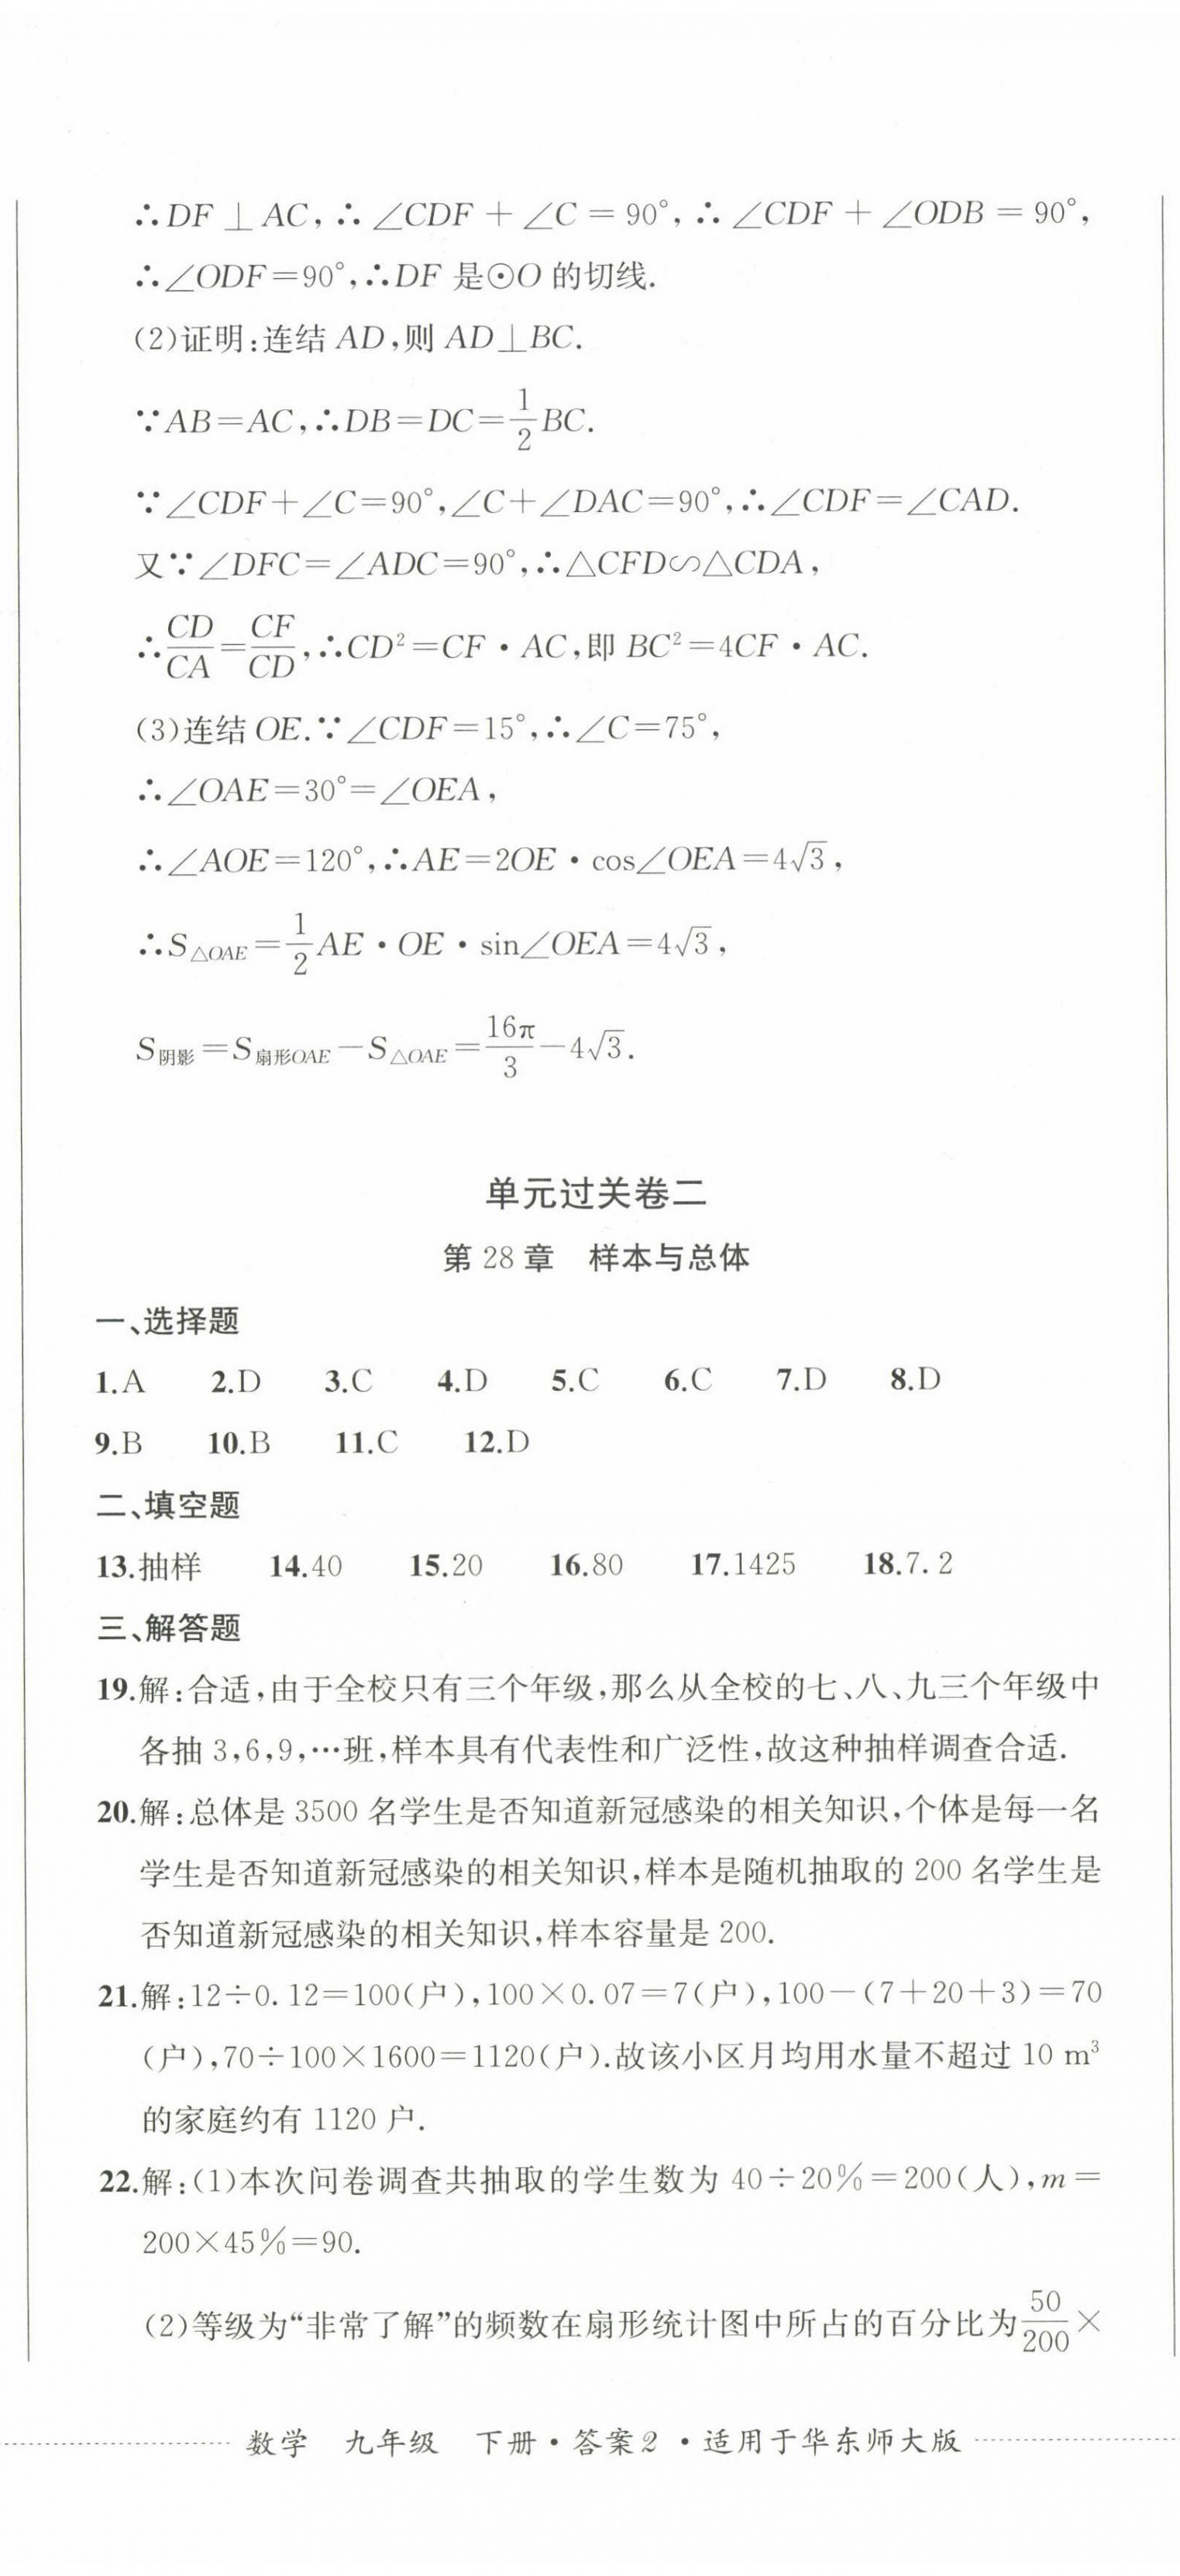 ∴DF⊥AC,∴∠CDF+∠C=90°,∴∠CDF+∠ODB=90°,
∴∠ODF=90°,∴DF 是⊙O 的切线.
(2)证明:连结 AD,则 AD⊥BC.
∵AB=AC,∴DB=DC=\frac{1}{2}BC.
∵∠CDF+∠C=90°,∠C+∠DAC=90°,∴∠CDF=∠CAD.
又∵∠DFC=∠ADC=90°,∴△CFD∽△CDA,
∴\frac{CD}{CA}=\frac{CF}{CD},∴CD²=CF·AC,即 BC²=4CF·AC.
(3)连结 OE.∵∠CDF=15°,∴∠C=75°,
∴∠OAE=30°=∠OEA,
∴∠AOE=120°,∴AE=2OE·cos∠OEA=4√3,
∴S△OAE=\frac{1}{2}AE·OE·sin∠OEA=4√3,
S阴影=S扇形OAE-S△OAE=\frac{16π}{3}-4√3.
单元过关卷二
第 28 章 样本与总体
一、选择题
1.A 2.D 3.C 4.D 5.C 6.C 7.D 8.D
9.B 10.B 11.C 12.D
二、填空题
13.抽样 14.40 15.20 16.80 17.1425 18.7.2
三、解答题
19.解:合适,由于全校只有三个年级,那么从全校的七、八、九三个年级中
各抽 3,6,9,…班,样本具有代表性和广泛性,故这种抽样调查合适.
20.解:总体是 3500 名学生是否知道新冠感染的相关知识,个体是每一名
学生是否知道新冠感染的相关知识,样本是随机抽取的 200 名学生是
否知道新冠感染的相关知识,样本容量是 200.
21.解:12÷0.12=100(户),100×0.07=7(户),100-(7+20+3)=70
(户),70÷100×1600=1120(户).故该小区月均用水量不超过 10 m³
的家庭约有 1120 户.
22.解:(1)本次问卷调查共抽取的学生数为 40÷20%=200(人),m=
200×45%=90.
(2)等级为“非常了解”的频数在扇形统计图中所占的百分比为\frac{50}{200}×
数学 九年级 下册·答案2 ·适用于华东师大版